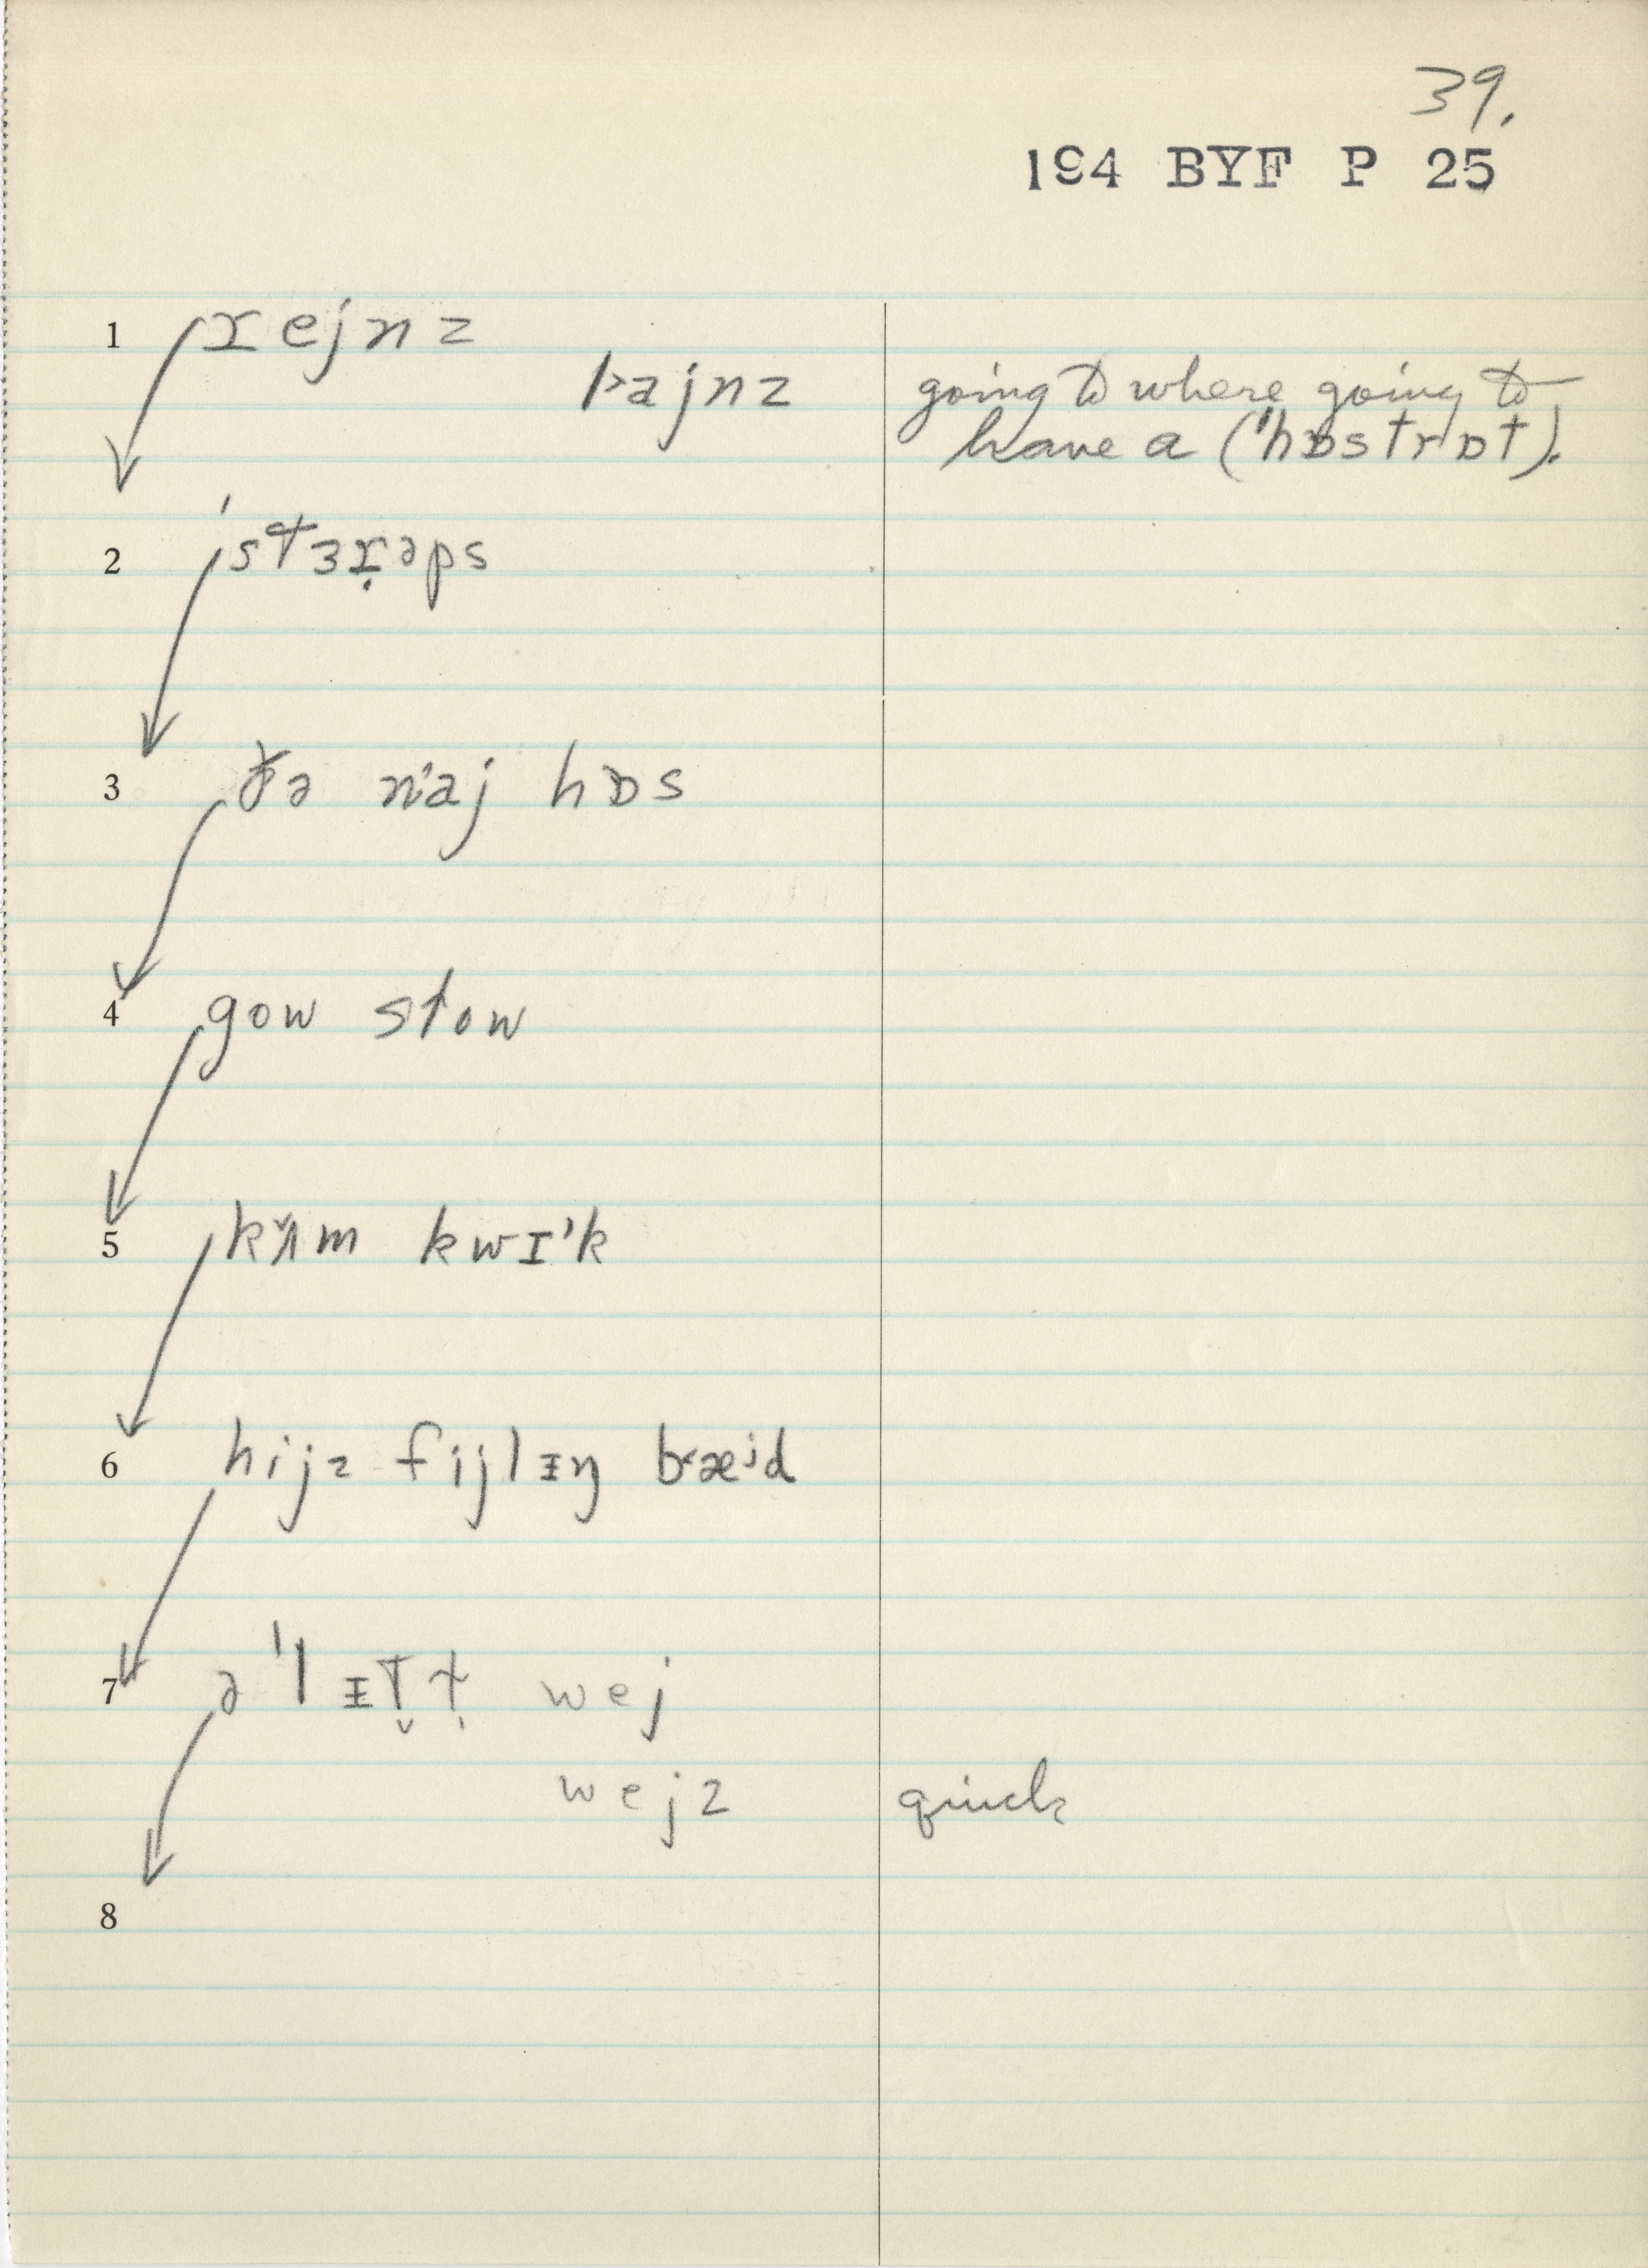 39.
194 BYF P 25
1 ɪejnz
ajnz going to where going to
have a (ˈhɒstrɒt).
2 ˈstɜɪ̣əps
3 ðə naj hɒs
4 gow stow
5 kʌ̌m kwɪ'k
6 hijz fijlɪŋ bæʲd
7 əˈlɪt̬ṭ wej
wejz quick
8